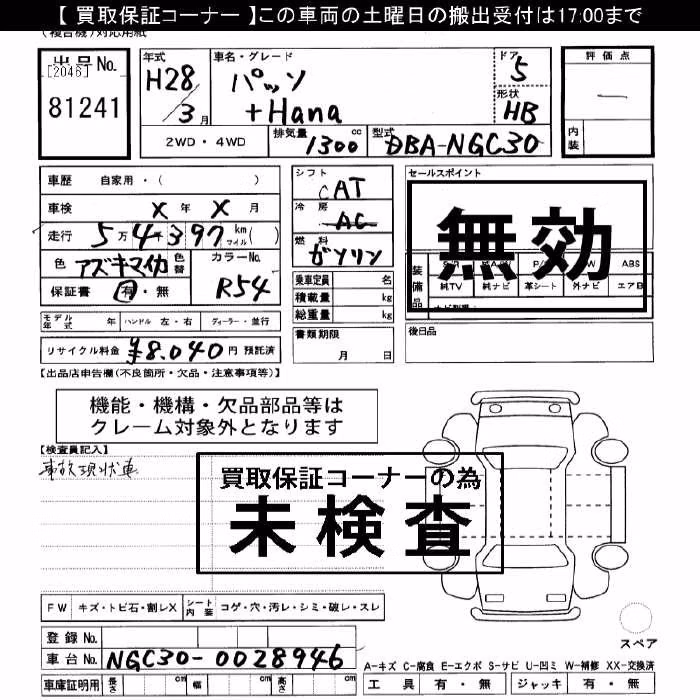 【 買取保証コーナー 】この車両の土曜日の搬出受付は17:00まで
(複合機)対応用紙
出品No.
[2046]
81241
年式
H28/3月
車名・グレード
パッソ
+Hana
ドア
5
形状
HB
評価点
―
内装
2WD・4WD
排気量
1300cc
型式
DBA-NGC30
車歴 自家用・( )
車検 X年 X月
走行 5万4千397km マイル( )
色 アズキマイカ 色替
カラーNo.
R54
保証書 有・無
シフト
CAT
冷房
AC
燃料
ガソリン
乗車定員 名
積載量 kg
総重量 kg
書類期限
月 日
セールスポイント
無効
装備品
ABS
純TV 純ナビ 革シート 外ナビ エアB
後日品
モデル年式 年 ハンドル 左・右 ディーラー・並行
リサイクル料金 ¥8.040円 預託済
【出品店申告欄(不良箇所・欠品・注意事項等)】
機能・機構・欠品部品等は
クレーム対象外となります
【検査員記入】
事故現状車
買取保証コーナーの為
未検査
FW キズ・トビ石・割レX シート内装 コゲ・穴・汚レ・シミ・破レ・スレ
登録No.
車台No. NGC30-0028946
車庫証明用 長さ cm 幅 cm 高さ cm
スペア
A-キズ C-腐食 E-エクボ S-サビ U-凹ミ W-補修 XX-交換済
工具 有・無 ジャッキ 有・無